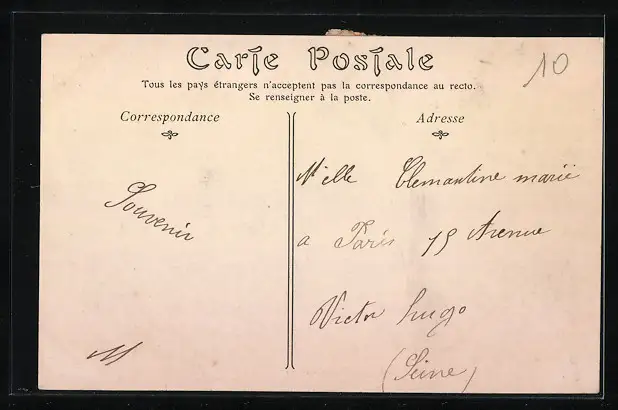 Carte Postale
10
Tous les pays étrangers n'acceptent pas la correspondance au recto.
Se renseigner à la poste.
Correspondance
Adresse
Souvenir
M
Melle Clemantine marie
a Paris 15 Avenue
Victor hugo
(Seine)